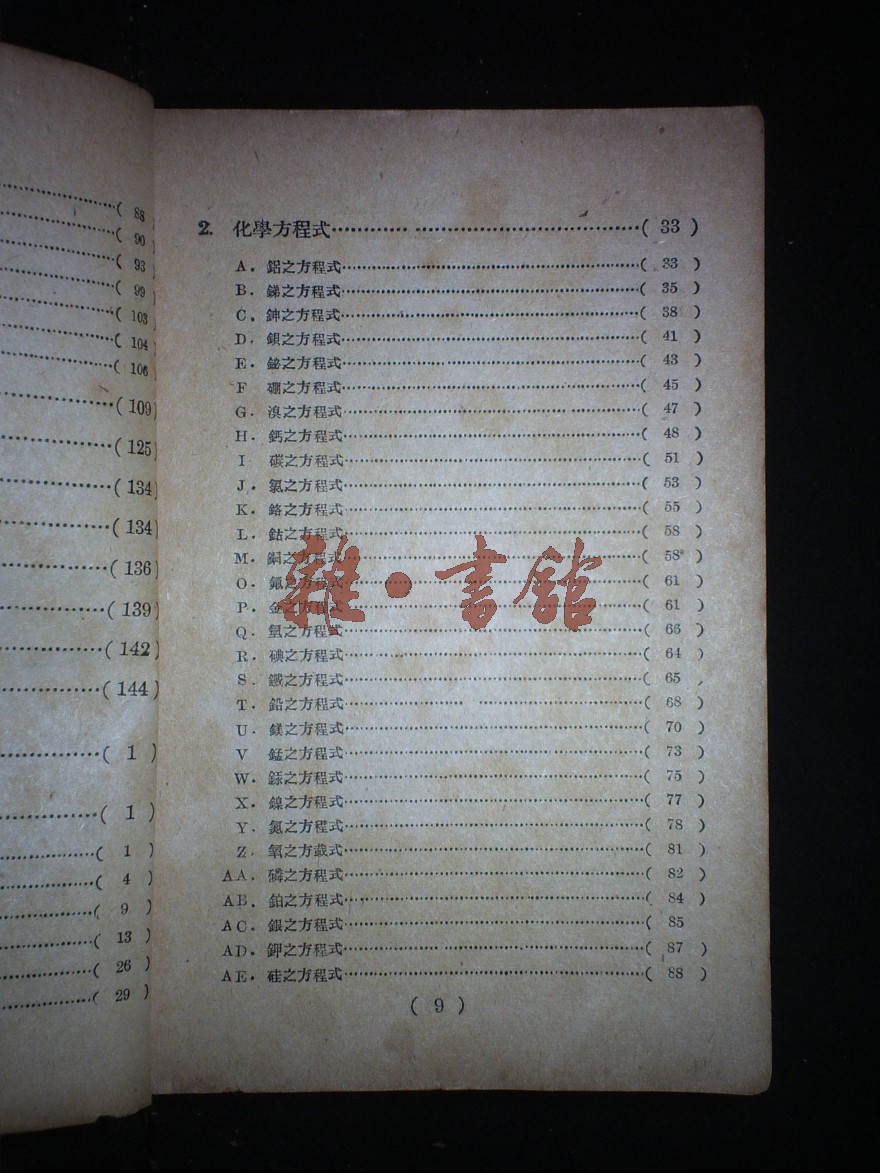 ( 88
( 90
( 93
( 99
( 103
( 104
( 106
( 109)
( 125)
( 134)
( 134)
( 136)
( 139)
( 142)
( 144)
( 1 )
( 1 )
( 1 )
( 4 )
( 9 )
( 13 )
( 26 )
( 29 )
2. 化學方程式………………………………( 33 )
A. 鋁之方程式………………………………( 33 )
B. 銻之方程式………………………………( 35 )
C. 鉮之方程式………………………………( 38 )
D. 鋇之方程式………………………………( 41 )
E. 鉍之方程式………………………………( 43 )
F 硼之方程式………………………………( 45 )
G. 溴之方程式………………………………( 47 )
H. 鈣之方程式………………………………( 48 )
I 碳之方程式………………………………( 51 )
J. 氯之方程式………………………………( 53 )
K. 鉻之方程式………………………………( 55 )
L. 鈷之方程式………………………………( 58 )
M. 銅之方程式………………………………( 58 )
O. 氟之方程式………………………………( 61 )
P. 金之方程式………………………………( 61 )
Q. 氫之方程式………………………………( 66 )
R. 碘之方程式………………………………( 64 )
S. 鐵之方程式………………………………( 65
T. 鉛之方程式………………………………( 68 )
U. 鎂之方程式………………………………( 70 )
V 錳之方程式………………………………( 73 )
W. 之方程式………………………………( 75 )
X. 鎳之方程式………………………………( 77 )
Y. 氮之方程式………………………………( 78 )
Z. 氧之方式………………………………( 81 )
AA. 磷之方程式………………………………( 82 )
AB. 鉑之方程式………………………………( 84 )
AC. 銀之方程式………………………………( 85
AD. 鉀之方程式………………………………( 87 )
AE. 硅之方程式………………………………( 88 )
( 9 )
雜·書館